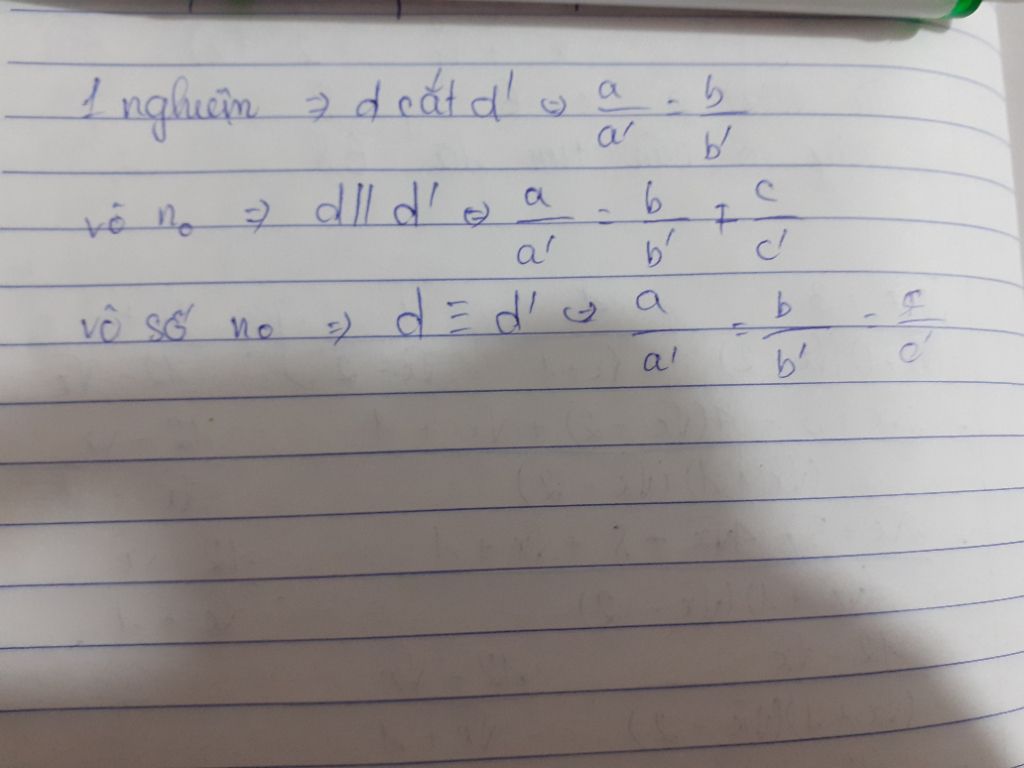 1 nghiệm => d cắt d' <=> a/a' = b/b'
vô no => d // d' <=> a/a' = b/b' ≠ c/c'
vô số no => d ≡ d' <=> a/a' = b/b' = c/c'